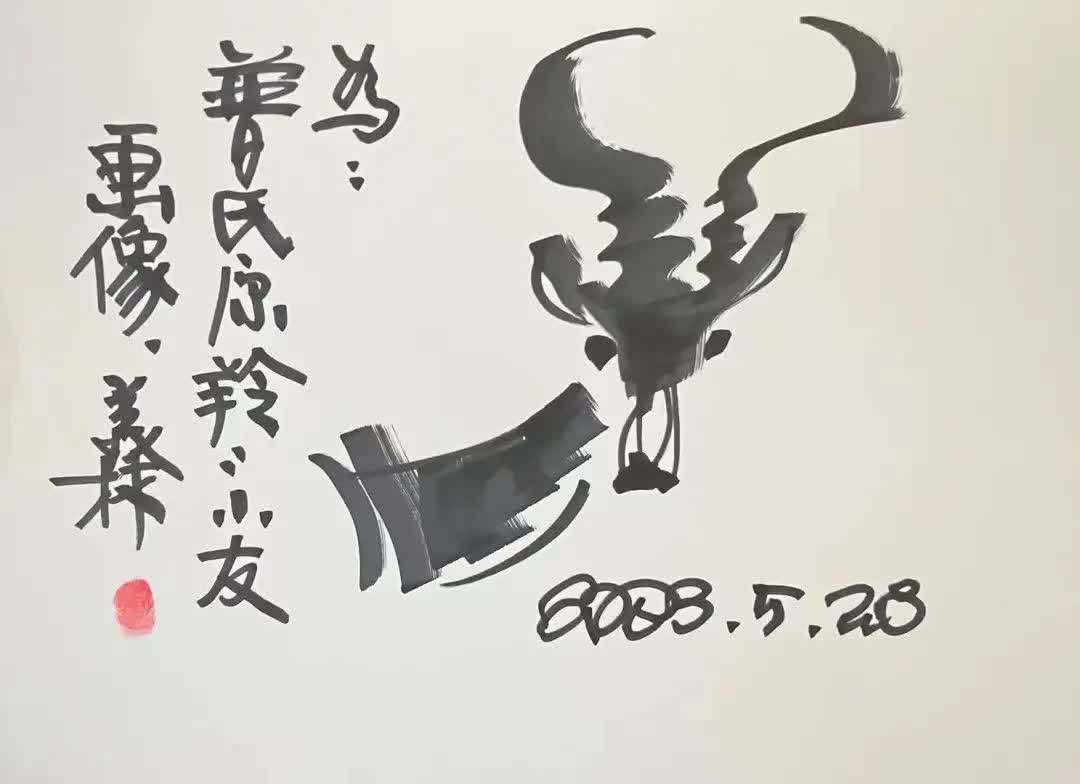 為：
普氏原羚：小友
画像．
2023.5.28